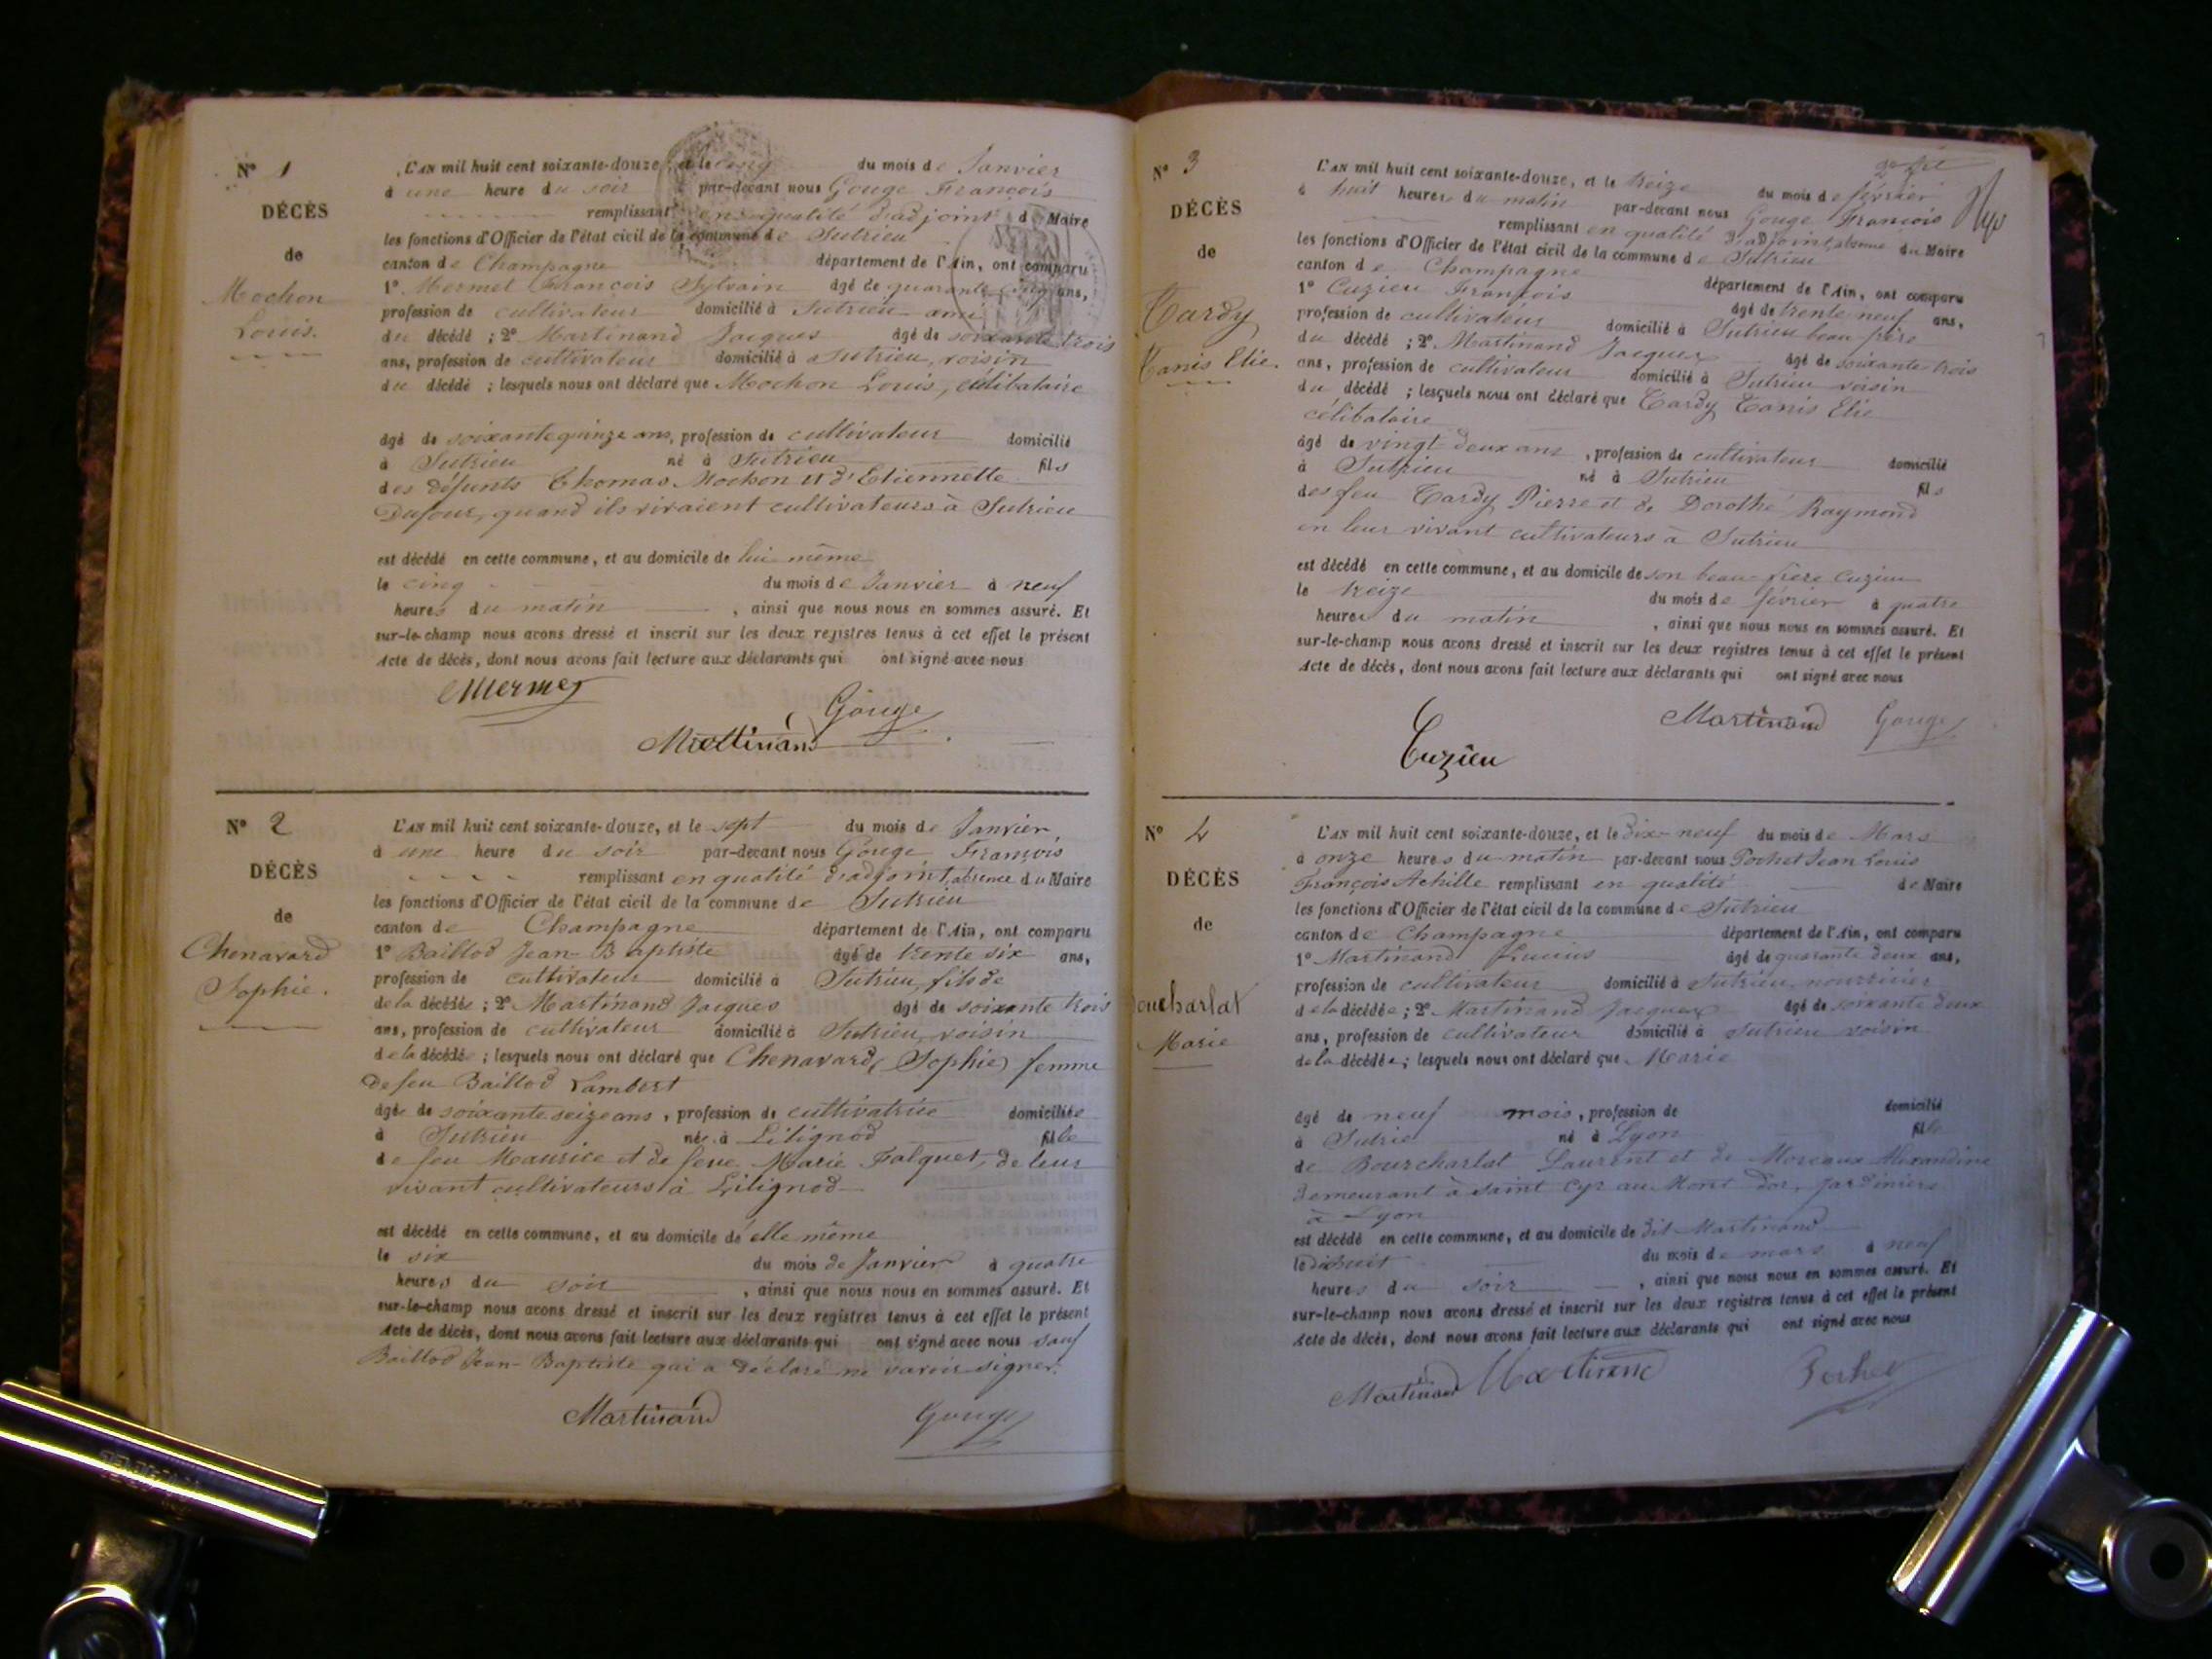 N° 1
DÉCÈS
de
Mochon
Louis.
L'AN mil huit cent soixante-douze, et le cinq du mois de Janvier
à une heure du soir par-devant nous Gouge François
remplissant en qualité d'adjoint d Maire
les fonctions d'Officier de l'état civil de la commune de Sutrieu
canton de Champagne département de l'Ain, ont comparu
1° Mermet François Sylvain âgé de quarante cinq ans,
profession de cultivateur domicilié à Sutrieu ami
du décédé ; 2° Martinand Jacques âgé de soixante trois
ans, profession de cultivateur domicilié à Sutrieu, voisin
du décédé ; lesquels nous ont déclaré que Mochon Louis, célibataire
âgé de soixante quinze ans, profession de cultivateur domicilié
à Sutrieu né à Sutrieu fils
des défunts Thomas Mochon et d'Etiennette
Dufour, quand ils vivaient cultivateurs à Sutrieu
est décédé en cette commune, et au domicile de lui même
le cinq du mois de Janvier à neuf
heures du matin, ainsi que nous nous en sommes assuré. Et
sur-le-champ nous avons dressé et inscrit sur les deux registres tenus à cet effet le présent
Acte de décès, dont nous avons fait lecture aux déclarants qui ont signé avec nous
Mermet
Gouge
Martinand
N° 2
DÉCÈS
de
Chenavard
Sophie.
L'AN mil huit cent soixante-douze, et le sept du mois de Janvier,
à une heure du soir par-devant nous Gouge François
remplissant en qualité d'adjoint absence du Maire
les fonctions d'Officier de l'état civil de la commune de Sutrieu
canton de Champagne département de l'Ain, ont comparu
1° Baillod Jean-Baptiste âgé de trente six ans,
profession de cultivateur domicilié à Sutrieu, fils de
de la décédée ; 2° Martinand Jacques âgé de soixante trois
ans, profession de cultivateur domicilié à Sutrieu, voisin
de la décédée ; lesquels nous ont déclaré que Chenavard (Sophie) femme
de feu Baillod Lambert
âgée de soixante seize ans, profession de cultivatrice domiciliée
à Sutrieu née à Lilignod fille
de feu Maurice et de feue Marie Falquet, de leur
vivant cultivateurs à Lilignod
est décédé en cette commune, et au domicile de elle même
le six du mois de Janvier à quatre
heures du soir, ainsi que nous nous en sommes assuré. Et
sur-le-champ nous avons dressé et inscrit sur les deux registres tenus à cet effet le présent
Acte de décès, dont nous avons fait lecture aux déclarants qui ont signé avec nous sauf
Baillod Jean-Baptiste qui a déclaré ne savoir signer.
Martinand
Gouge
N° 3
DÉCÈS
de
Tardy
Tanis Elie.
L'AN mil huit cent soixante-douze, et le treize du mois de février
à huit heures du matin par-devant nous Gouge François
remplissant en qualité d'adjoint, absence du Maire
les fonctions d'Officier de l'état civil de la commune de Sutrieu
canton de Champagne département de l'Ain, ont comparu
1° Cuzieu François âgé de trente neuf ans,
profession de cultivateur domicilié à Sutrieu beau frère
du décédé ; 2° Martinand Jacques âgé de soixante trois
ans, profession de cultivateur domicilié à Sutrieu voisin
du décédé ; lesquels nous ont déclaré que Tardy Tanis Elie
célibataire
âgé de vingt deux ans, profession de cultivateur domicilié
à Sutrieu né à Sutrieu fils
des feu Tardy Pierre et de Dorothé Raymond
en leur vivant cultivateurs à Sutrieu
est décédé en cette commune, et au domicile de son beau-frère Cuzieu
le treize du mois de février à quatre
heures du matin, ainsi que nous nous en sommes assuré. Et
sur-le-champ nous avons dressé et inscrit sur les deux registres tenus à cet effet le présent
Acte de décès, dont nous avons fait lecture aux déclarants qui ont signé avec nous
Martinand Gouge
Cuzieu
N° 4
DÉCÈS
de
Marie
L'AN mil huit cent soixante-douze, et le dix-neuf du mois de Mars
à onze heures du matin par-devant nous Pochet Jean Louis
François Achille remplissant en qualité de Maire
les fonctions d'Officier de l'état civil de la commune de Sutrieu
canton de Champagne département de l'Ain, ont comparu
1° Martinand âgé de quarante deux ans,
profession de cultivateur domicilié à Sutrieu, nourricier
de la décédée ; 2° Martinand Jacques âgé de soixante deux
ans, profession de cultivateur domicilié à Sutrieu voisin
de la décédée ; lesquels nous ont déclaré que Marie
âgé de neuf mois, profession de domicilié
à Sutrieu né à Lyon fille
de Bourcharlat Laurent et de
demeurant à Saint Cyr au Mont d'or, jardiniers
à Lyon
est décédé en cette commune, et au domicile de dit Martinand
le dixhuit du mois de mars à neuf
heures du soir, ainsi que nous nous en sommes assuré. Et
sur-le-champ nous avons dressé et inscrit sur les deux registres tenus à cet effet le présent
Acte de décès, dont nous avons fait lecture aux déclarants qui ont signé avec nous
Martinand Martinand Pochet